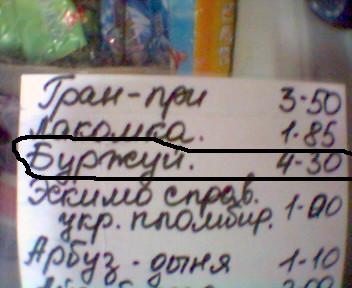 Гран-при 3-50
Лакомка. 1-85
Буржуй. 4-30
Эскимо справ.
укр. пломбир. 1-90
Арбуз-дыня 1-10